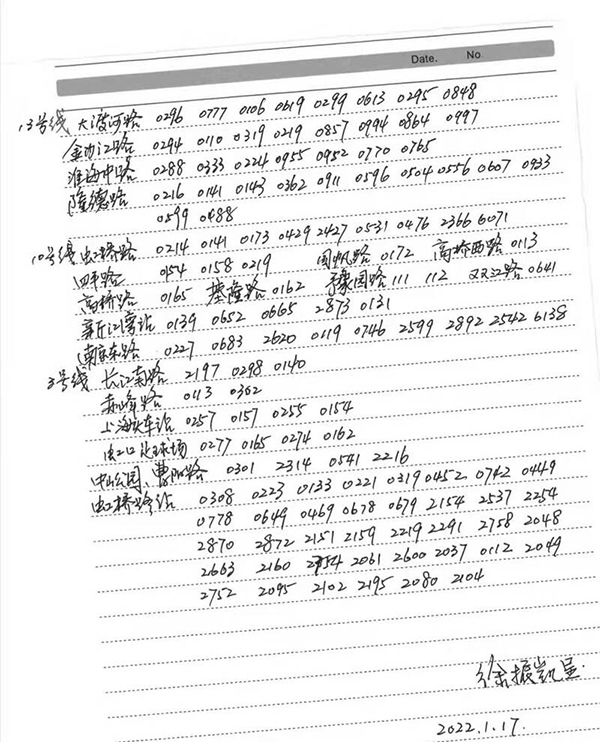 Date. No
13号线 大渡河路 0296 0777 0106 0619 0299 0613 0295 0848
金沙江路 0294 0110 0319 0219 0857 0994 0864 0997
淮海中路 0288 0333 0224 0955 0952 0770 0765
隆德路 0216 0141 0143 0362 0911 0596 0504 0556 0607 0933
0599 0488
10号线 虹桥路 0214 0141 0173 0429 2427 0531 0476 2366 6071
四平路 0154 0158 0219 国帆路 0172 高桥西路 0113
高桥路 0165 基隆路 0162 豫园路 111 112 双江路 0641
新江湾站 0139 0652 0665 2873 0131
南京东路 0227 0683 2620 0119 0746 2599 2892 2542 6138
3号线 长江南路 2197 0298 0140
赤峰路 0113 0362
上海火车站 0257 0157 0255 0154
虹口足球场 0277 0165 0274 0162
中山公园、曹杨路 0301 2314 0541 2216
虹桥路站 0308 0223 0133 0221 0319 0452 0742 0449
0778 0649 0469 0678 0679 2154 2537 2254
2870 2872 2151 2159 2219 2291 2758 2048
2663 2160 2754 2061 2600 2037 0112 2049
2752 2095 2102 2195 2080 2104
徐振凯呈
2022.1.17.